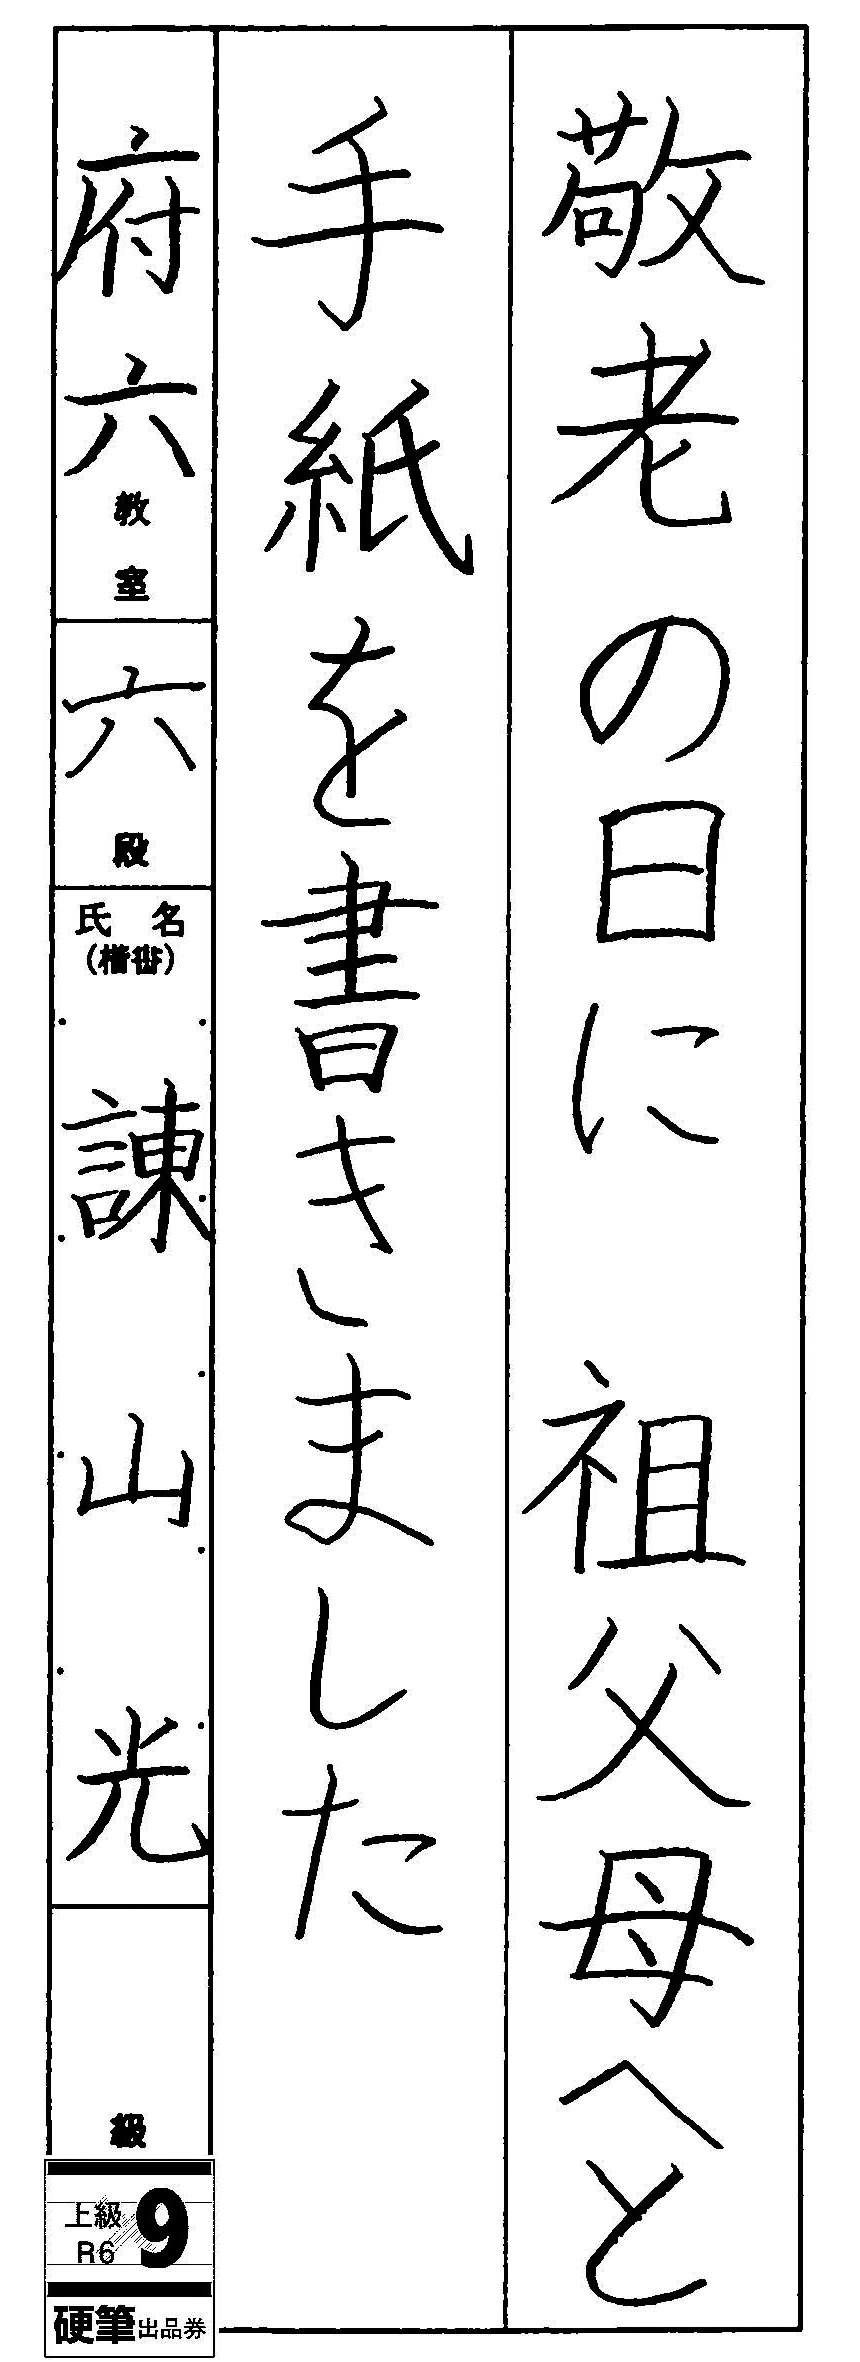 敬老の日に　祖父母へと
手紙を書きました
府六教室
六段
氏名
(楷書)
諌山光
級
上級
R6
9
硬筆出品券